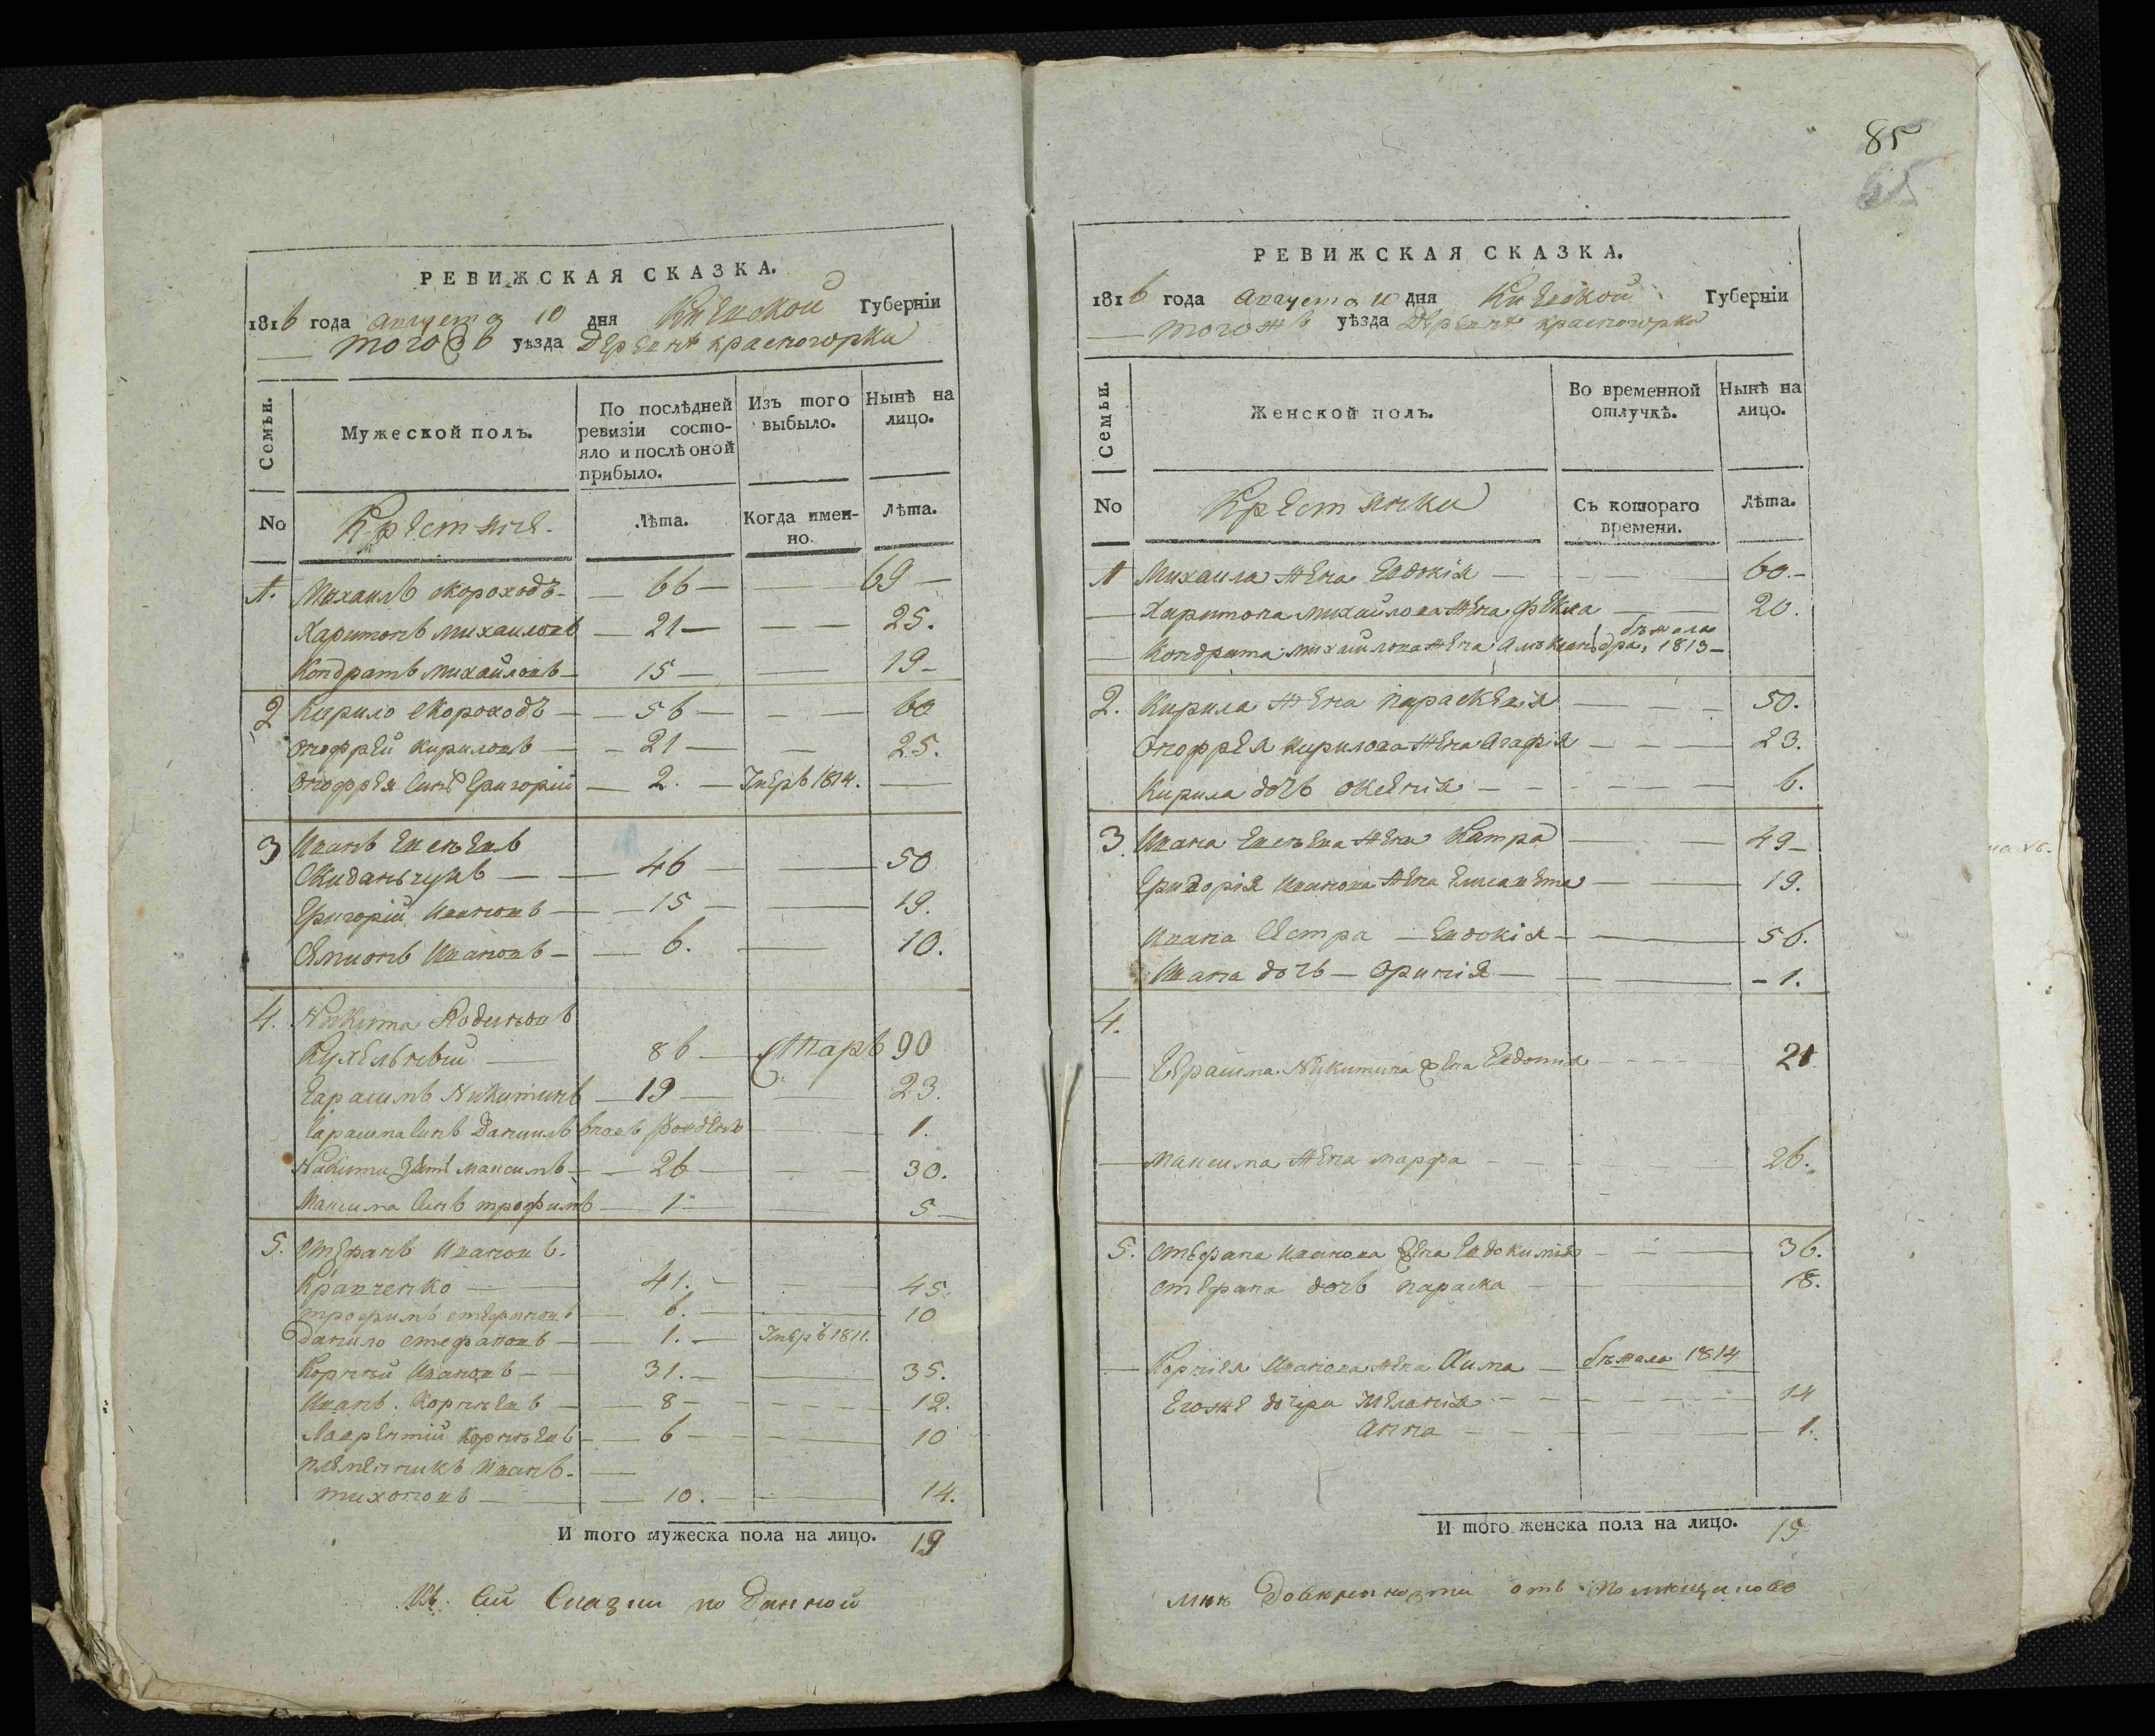 85
65
РЕВИЖСКАЯ СКАЗКА.
1816 года августа 10 дня Киевской Губерніи
тогожъ уѣзда деревнѣ красногорки
Семьи.
Мужеской полъ.
По послѣдней ревизіи состо-
яло и послѣ оной
прибыло.
Изъ того
выбыло.
Нынѣ на
лицо.
No
Крестяне.
Лѣта.
Когда имен-
но.
Лѣта.
1. Михаилъ скороходъ — 66 — 69 —
Харитонъ михаиловъ — 21 — 25.
Кондратъ михайловъ — 15 — 19 —
2 Кирило скороходъ — 56 — 60
Онофрей кириловъ — 21 — 25.
Онофрея синъ Григорій — 2. — Генеръ 1814. —
3 Иванъ Евсѣевъ
Скиданьчукъ — 46 — 50
Григорій Ивановъ — 15 — 19.
Семионъ Ивановъ — 6. — 10.
4. Никита Родиновъ
86 — 90
Гарасимъ Никитинъ — 19 — 23.
Гарасима синъ Даниилъ вновъ рожденъ — 1.
Никиты Зять максимъ — 26 — 30.
Максима Синъ трофимъ — 1 — 5 —
5. Стефанъ Ивановъ.
Кравченко — 41. — 45.
трофимъ стефановъ — 6. — 10
Данило стефановъ — 1. — Генеръ 1811.
Корнѣй Ивановъ — 31. — 35.
Иванъ Корнѣевъ — 8 — 12.
Лаврентій Корнѣевъ — 6 — 10
племенникъ Иванъ —
тихоновъ — 10. — 14.
И того мужеска пола на лицо. 19
Къ Сей Сказки по Данной
РЕВИЖСКАЯ СКАЗКА.
1816 года августа 10 дня Киевской Губерніи
— тогожъ уѣзда деревнѣ красногорки
Семьи.
Женской полъ.
Во временной
отлучкѣ.
Нынѣ на
лицо.
No
Крестянки
Съ котораго
времени.
Лѣта.
1 Михаила жена Евдокія — 60. —
— Харитона михайлова жена фекла — 20.
бѣжала
— Кондрата михайлова жена Александра, 1813 —
2. Кирила жена параскевія — 50.
Онофрея кирилова жена Агафія — 23.
Кирила дочъ — 6.
3. Ивана Евсѣева жена Катра — 49 —
Григорія Иванова жена Елисавета — 19.
Ивана Сестра — Евдокія — 56.
Ивана дочъ — Оринія — 1.
4.
— Герасима Никитина жена — 21
— максима жена марфа — 26.
5. стефана Иванова жена Евдокимія — 36.
стефана дочъ параска — 18.
— Корнія Иванова жена — бежала 1814
Егоже дочери Меланія — 14
анна — 1.
И того женска пола на лицо. 15
мнѣ отъ